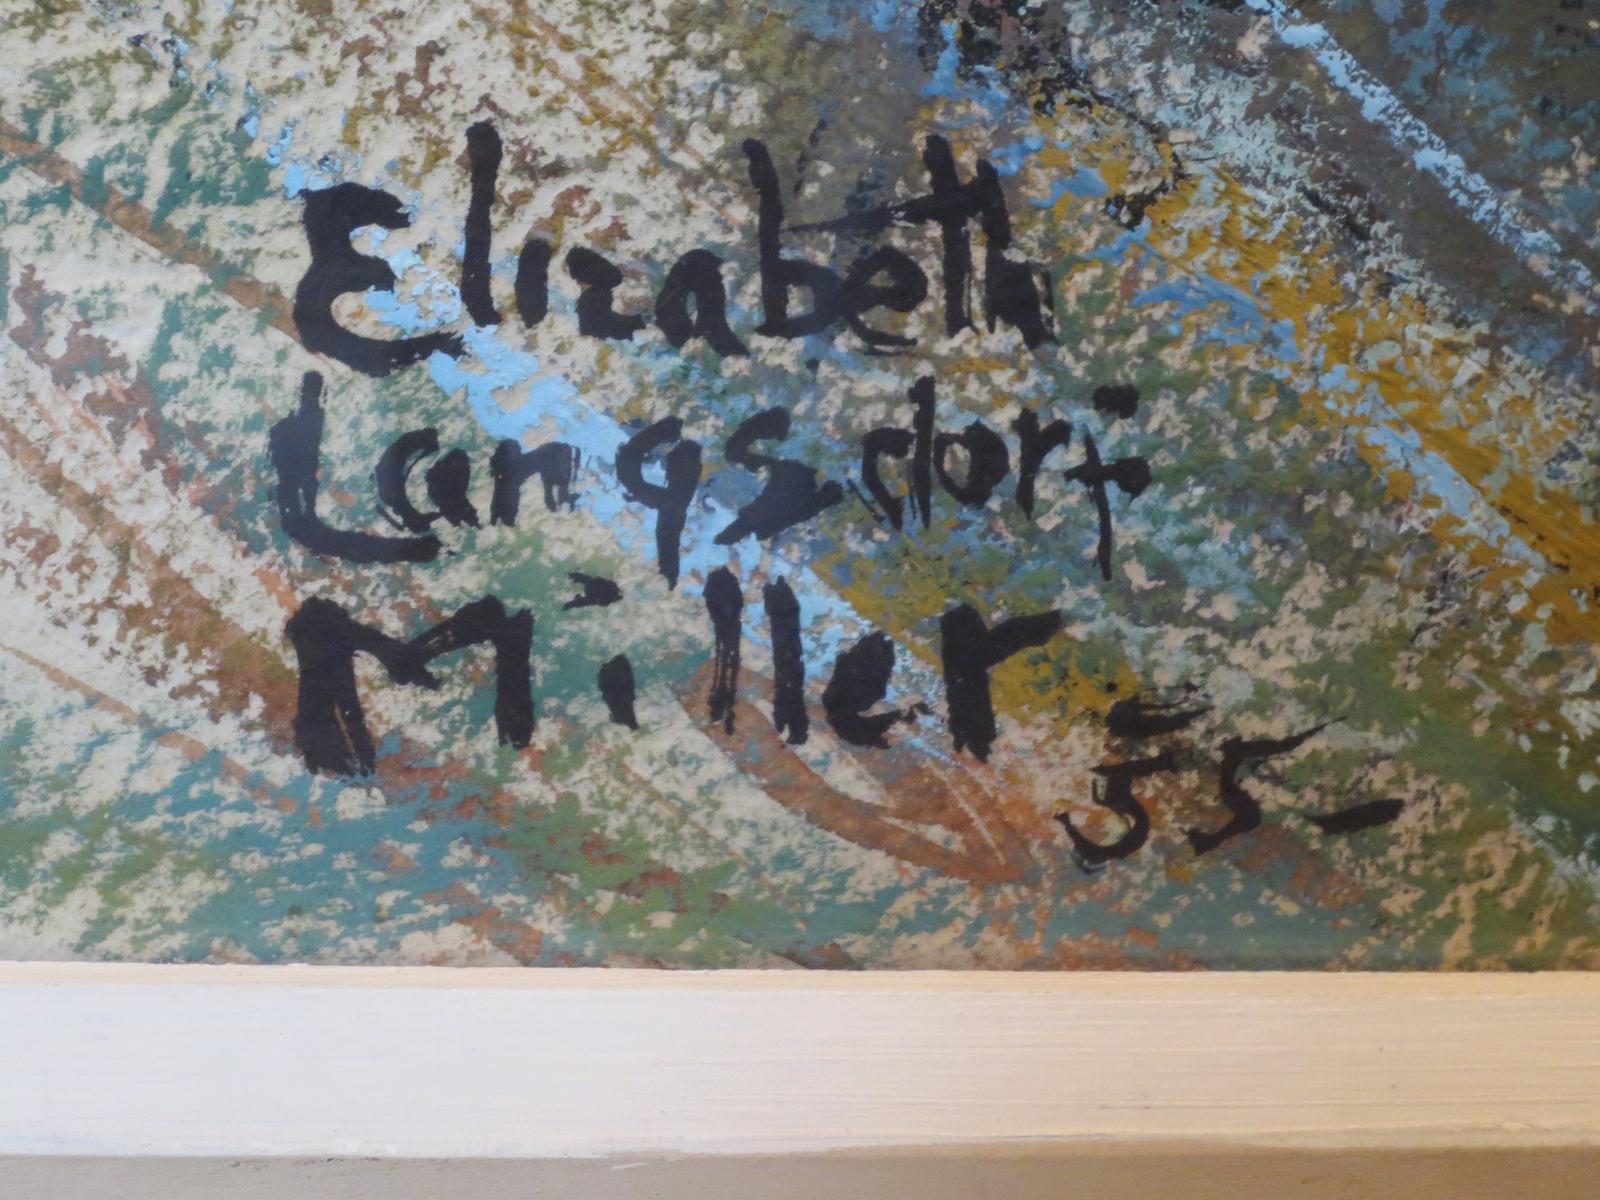 Elizabeth
Langsdorf
Miller
55-